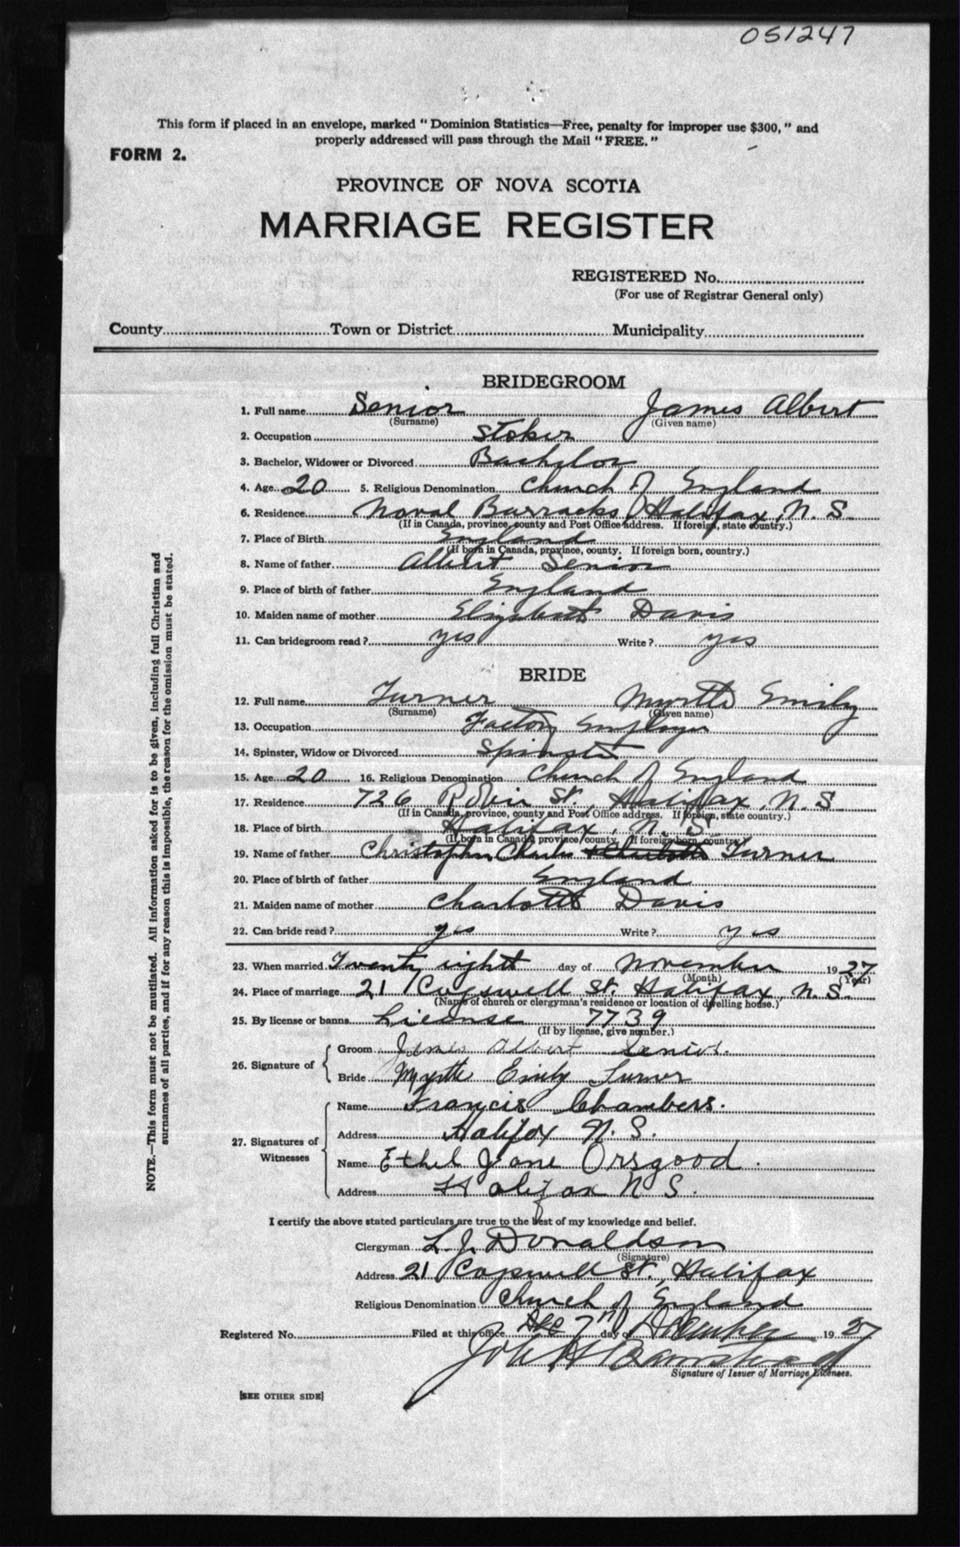 051247
This form if placed in an envelope, marked "Dominion Statistics—Free, penalty for improper use $300," and
properly addressed will pass through the Mail "FREE."
FORM 2.
PROVINCE OF NOVA SCOTIA
MARRIAGE REGISTER
REGISTERED No.
(For use of Registrar General only)
County Town or District Municipality
BRIDEGROOM
1. Full name Senior James Albert
(Surname) (Given name)
2. Occupation Stoker
3. Bachelor, Widower or Divorced Bachelor
4. Age 20 5. Religious Denomination Church of England
6. Residence Naval Barracks Halifax, N. S.
(If in Canada, province, county and Post Office address. If foreign, state country.)
7. Place of Birth England
(If born in Canada, province, county. If foreign born, country.)
8. Name of father Albert Senior
9. Place of birth of father England
10. Maiden name of mother Elizabeth Davis
11. Can bridegroom read? yes Write? yes
BRIDE
12. Full name Turner Myrtle Emily
(Surname) (Given name)
13. Occupation Factory
14. Spinster, Widow or Divorced Spinster
15. Age 20 16. Religious Denomination Church of England
17. Residence 726 St., Halifax, N. S
(If in Canada, province, county and Post Office address. If foreign, state country.)
18. Place of birth Halifax, N. S.
(If born in Canada, province, county. If foreign born, country.)
19. Name of father Christopher Charles Turner
20. Place of birth of father England
21. Maiden name of mother Charlotte Davis
22. Can bride read? yes Write? yes
23. When married Twenty eighth day of November 1927
(Month) (Year)
24. Place of marriage 21 Cogswell St. Halifax, N. S.
(Name of church or clergyman's residence or location of dwelling house.)
25. By license or banns License 7739
(If by license, give number.)
26. Signature of
Groom James Albert Senior.
Bride Myrtle Emily Turner
27. Signatures of Witnesses
Name Francis Chambers.
Address Halifax N. S.
Name Ethel Jane Orsgood.
Address Halifax N S.
I certify the above stated particulars are true to the best of my knowledge and belief.
Clergyman L. J. Donaldson
(Signature)
Address 21 Cogswell St., Halifax
Religious Denomination Church of England
Registered No. Filed at this office Dec 7th day of December 1927
Signature of Issuer of Marriage Licenses.
[SEE OTHER SIDE]
NOTE.—This form must not be mutilated. All information asked for is to be given, including full Christian and
surnames of all parties, and if for any reason this is impossible, the reason for the omission must be stated.